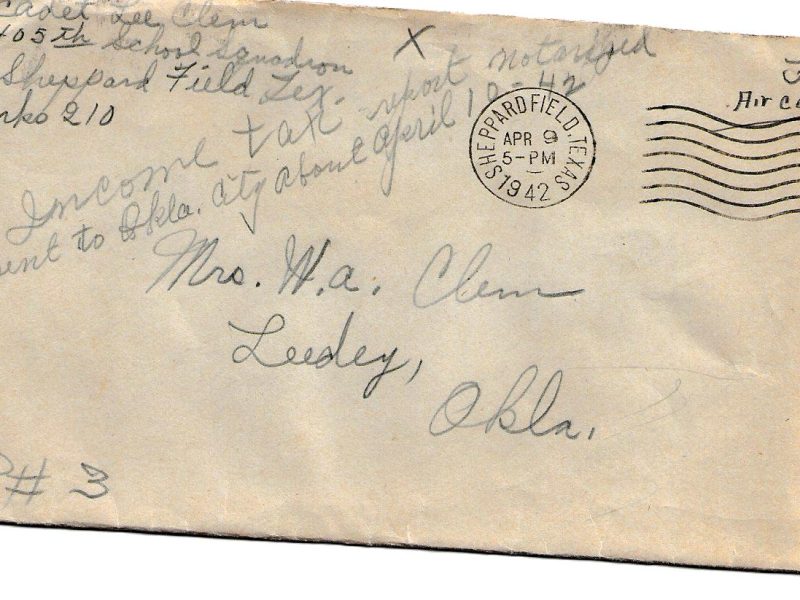 Cadet Lee Clem
405th School Squadron
Sheppard Field Tex.
210
X
Income tax report notarized
sent to Okla. City about April 10-42
SHEPPARD FIELD, TEXAS
APR 9
5-PM
1942
Air
Mrs. W.a. Clem
Leedey,
Okla.
# 3